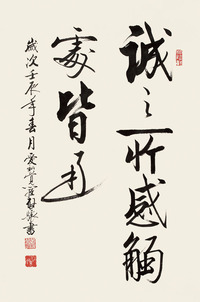 誠之所感觸
處皆通
歲次壬辰年春月愛新覺羅